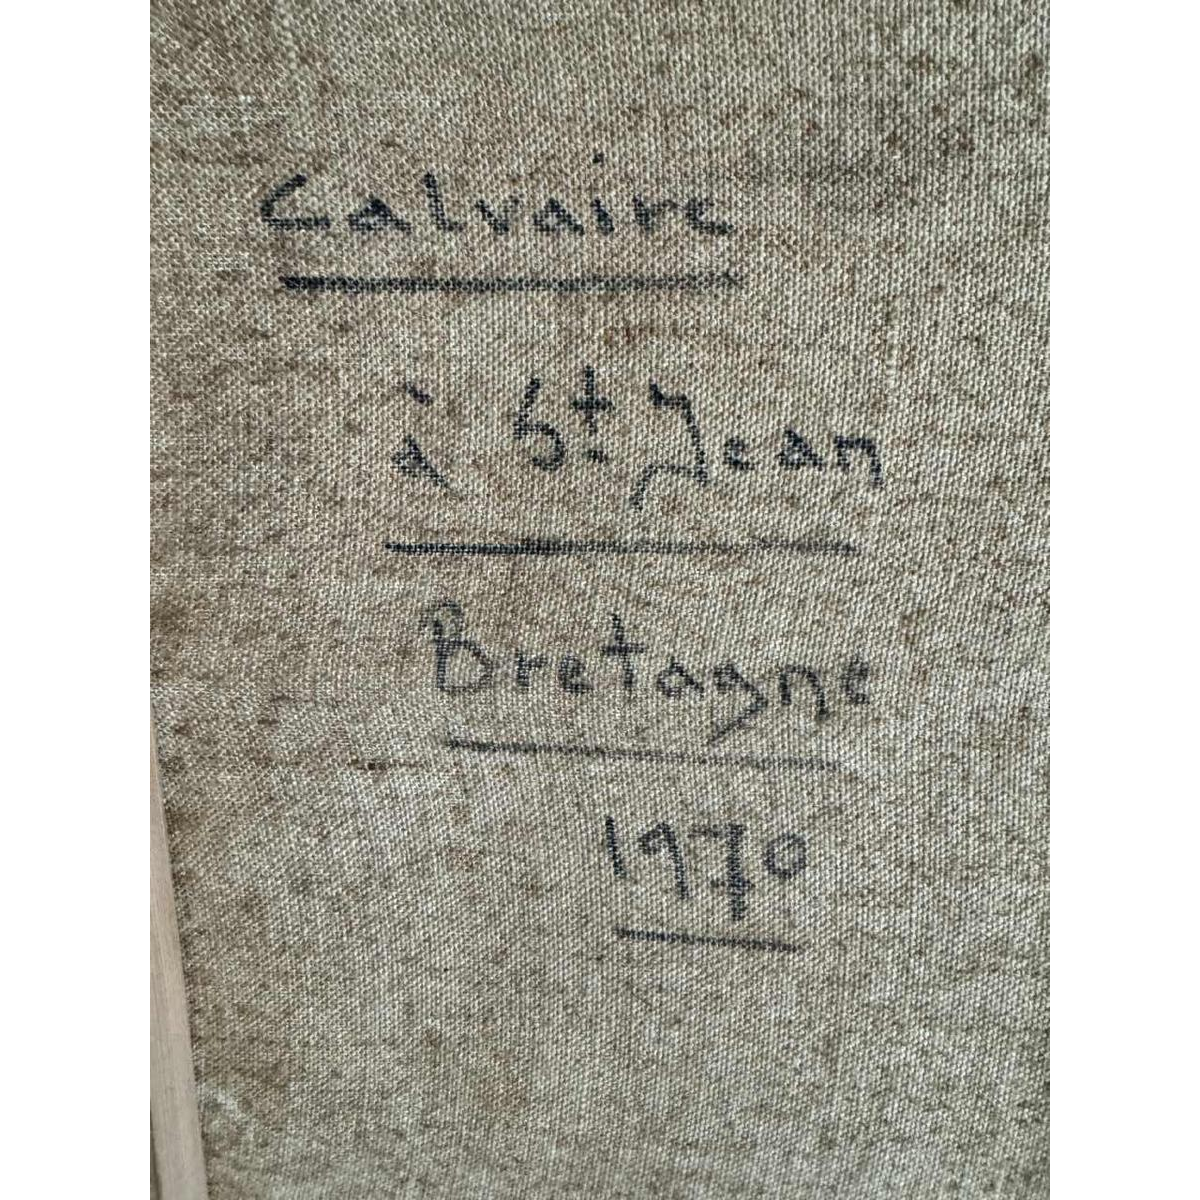 Calvaire
à St. Jean
Bretagne
1970